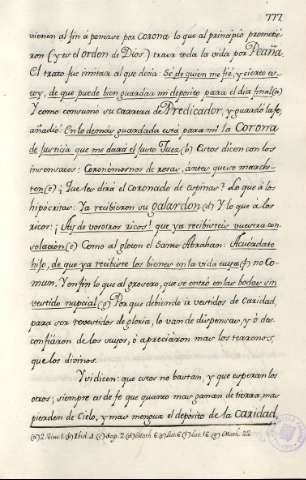 777
vienen al fin á ponerse por corona lo que al principio prometie
ron (y es el orden de Dios) traxa toda la vida por Peaña.
El trazo fue imitar al que decia Se de quien me fié, y cierto es
toy, de que puede bien guardar mi deposito para el dia final (a)
Y como consumó su carrera de Predicador, y guardó la fe,
añadió: En lo demás guardada está para mi la Corona
de Justicia que me dará el Justo Juez (b) Estos dicen con los
insensatos: Coronémonos de rosas, ántes que se marchi
ten (c) ¿Que les dirá el coronado de espinas? Lo que á los
hipócritas: Ya recibieron su galardon (d) Y lo que á los
ricos: ¡Ay de vosotros ricos! que ya recibisteis vuestra con
solacion (e) Como al gloton el Santo Abrahan: Acuerdate
hijo, de que ya recibiste los bienes en la vida tuya (f) no Co
mun. Y en fin lo que al grosero, que se entró en las bodas sin
vestido nupcial (g) Por que debiendo ir vestidos de Caridad,
para ser revestidos de gloria, lo van de dispensas, y ó des
confiaron de los suyos, ó apreciaron mas los terrenos,
que los divinos.
Y si dicen: que estos no bastan, y que esperan los
otros; siempre es de fe que quanto mas ganan de honra, mas
pierden de Cielo, y mas mengua el depósito de la Caridad,
(a) 2. Tim. 1. (b) Ibid. 4. (c) Sap. 2. (d) Math. 6. (e) Luc. 6. (f) Luc. 16. (g) Math. 22.